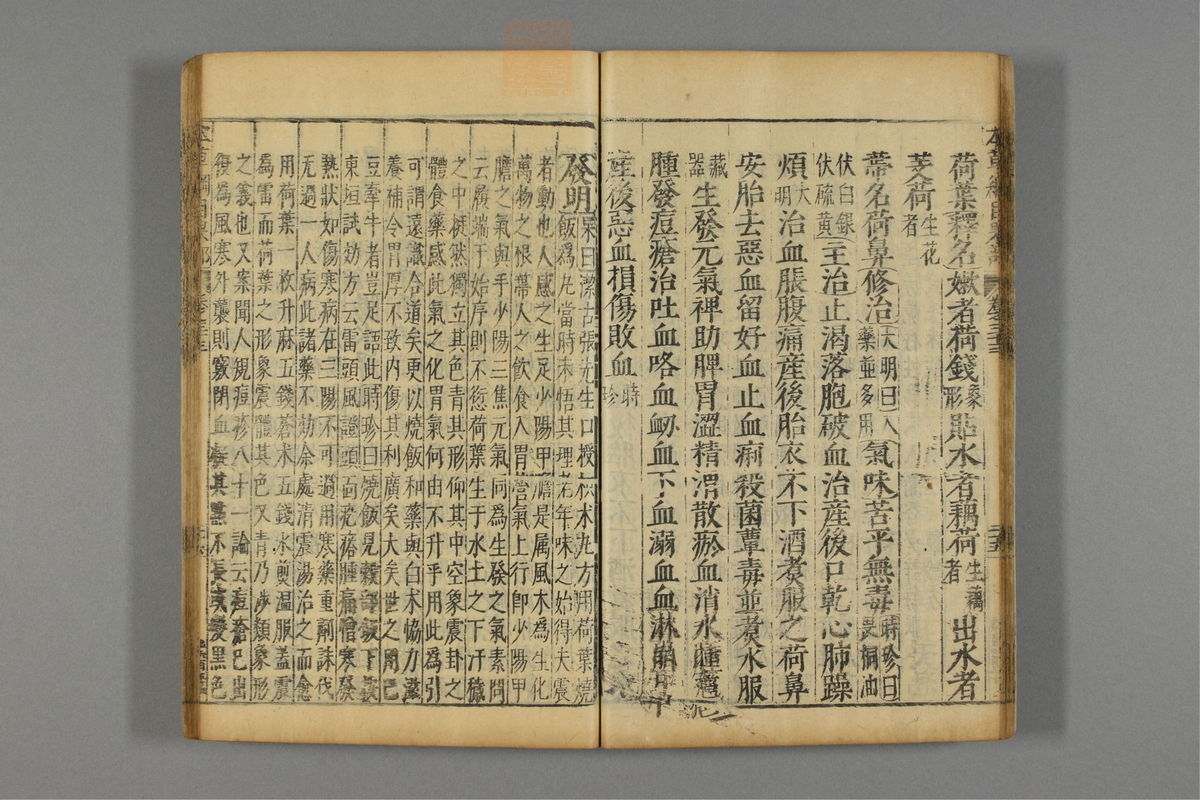 荷葉釋名嫩者荷錢象形貼水者藕荷生藕者出水者
芰荷生花者
蒂名荷鼻修治大明曰入藥並多用氣味苦平無毒時珍曰畏桐油
伏白銀伏硫黄主治止渴落胞破血治産後口乾心肺躁
煩大明治血脹腹痛産後胎衣不下酒煮服之荷鼻
安胎去惡血留好血止血痢殺菌蕈毒並煮水服
藏器生發元氣裨助脾胃澀精滑散瘀血消水腫癰
腫發痘瘡治吐血咯血衂血下血溺血血淋崩中
産後惡血損傷敗血時珍
發明杲曰潔古張先生口授枳术丸方用荷葉燒
飯爲丸當時未悟其理老年味之始得夫震
者動也人感之生足少陽甲膽是属風木爲生化
萬物之根蒂人之飲食入胃營氣上行卽少陽甲
膽之氣與手少陽三焦元氣同爲生發之氣素問
云履端于始序則不愆荷葉生于水土之下汙穢
之中挺然獨立其色青其形仰其中空象震卦之
體食藥感此氣之化胃氣何由不升乎用此爲引
可謂遠識合道矣更以燒飯和藥與白术恊力滋
養補令胃厚不致内傷其利廣矣大矣世之用巴
豆牽牛者豈足語此時珍曰燒飯見穀部飯下
東垣試効方云雷頭風證頭面疙瘩腫痛憎寒發
熱狀如傷寒病在三陽不可過用寒藥重劑誅伐
无過一人病此諸藥不効余處清震湯治之而愈
用荷葉一枚升麻五錢蒼术五錢水煎温服盖震
爲雷而荷葉之形象震體其色又青乃涉類象形
之義也又案聞人規痘疹八十一論云痘瘡已出
復爲風寒外襲則竅閉血其㸃不長或變黑色